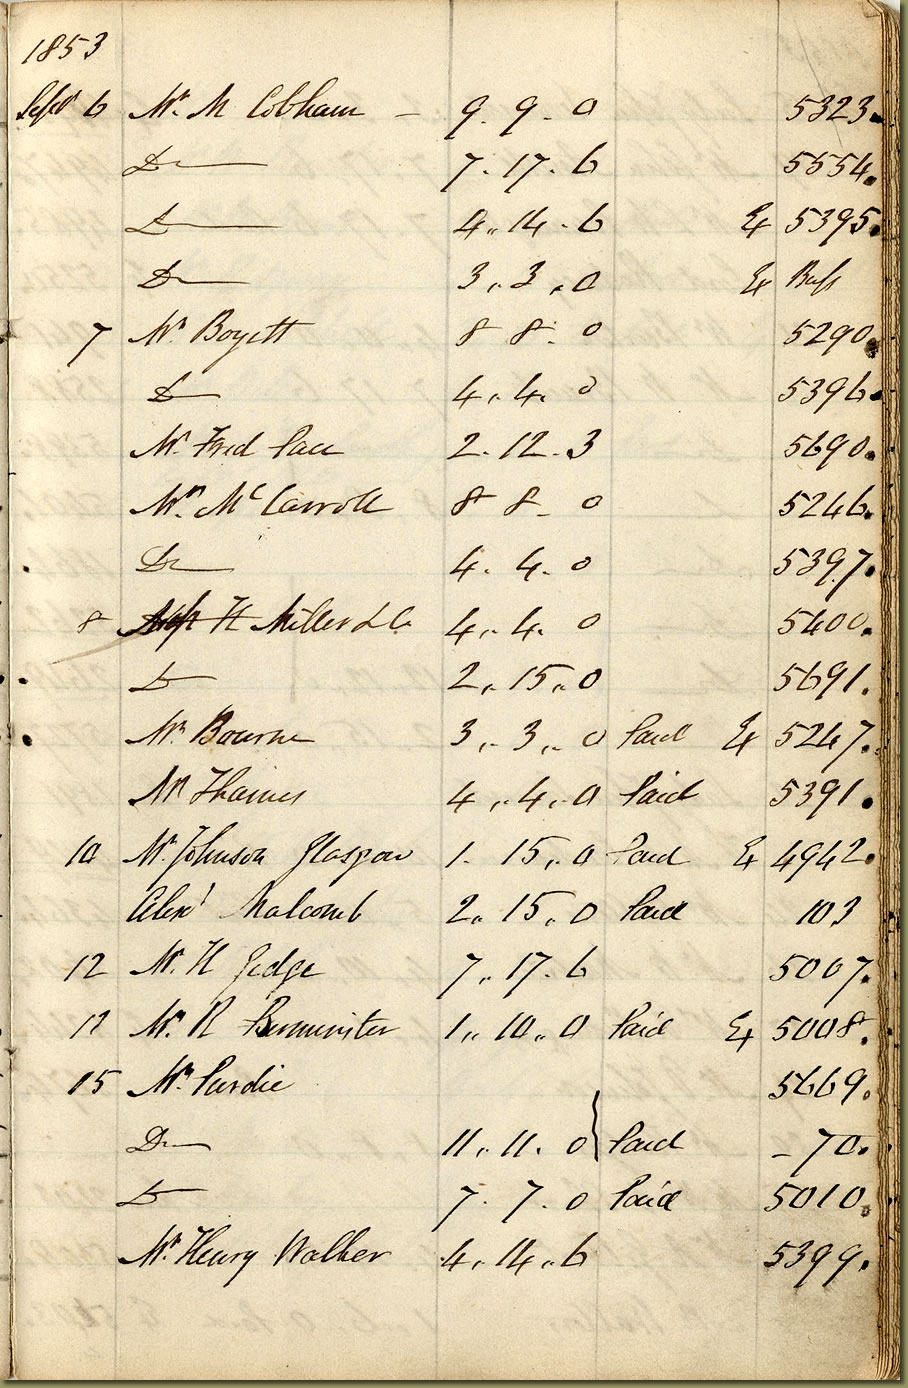 1853
Sept 6 Mr. M Cobham — 9. 9. 0 5323.
Do 7. 17. 6 5554.
Do 4.. 14. 6 Ex 5395.
Do 3.. 3.. 0 Ex Bass
7 Mr Boyett 8 8. 0 5290
Do 4.. 4. 0 5396.
Mr. Fred Pace 2. 12. 3 5690.
Mr. McCarroll 8 8. 0 5246.
Do 4. 4. 0 5397.
8 H Miller & Co 4.. 4. 0 5400.
Do 2.. 15.. 0 5691.
Mr. Bourne 3.. 3.. 0 Paid Ex 5247.
Mr Thames 4.. 4.. 0 Paid 5391.
10 Mr. Johnson Glasgow 1. 15.. 0 Paid Ex 4942.
Alexr Malcomb 2.. 15. 0 Paid 103
12 Mr. H Gedge 7.. 17. 6 5007.
Mr. R 1.. 10.. 0 Paid Ex 5008.
15 Mr. Purdie 5669.
Do 11.. 11. 0 } Paid – 70.
Do 7. 7. 0 Paid 5010.
Mr. Henry Walker 4.. 14.. 6 5399.